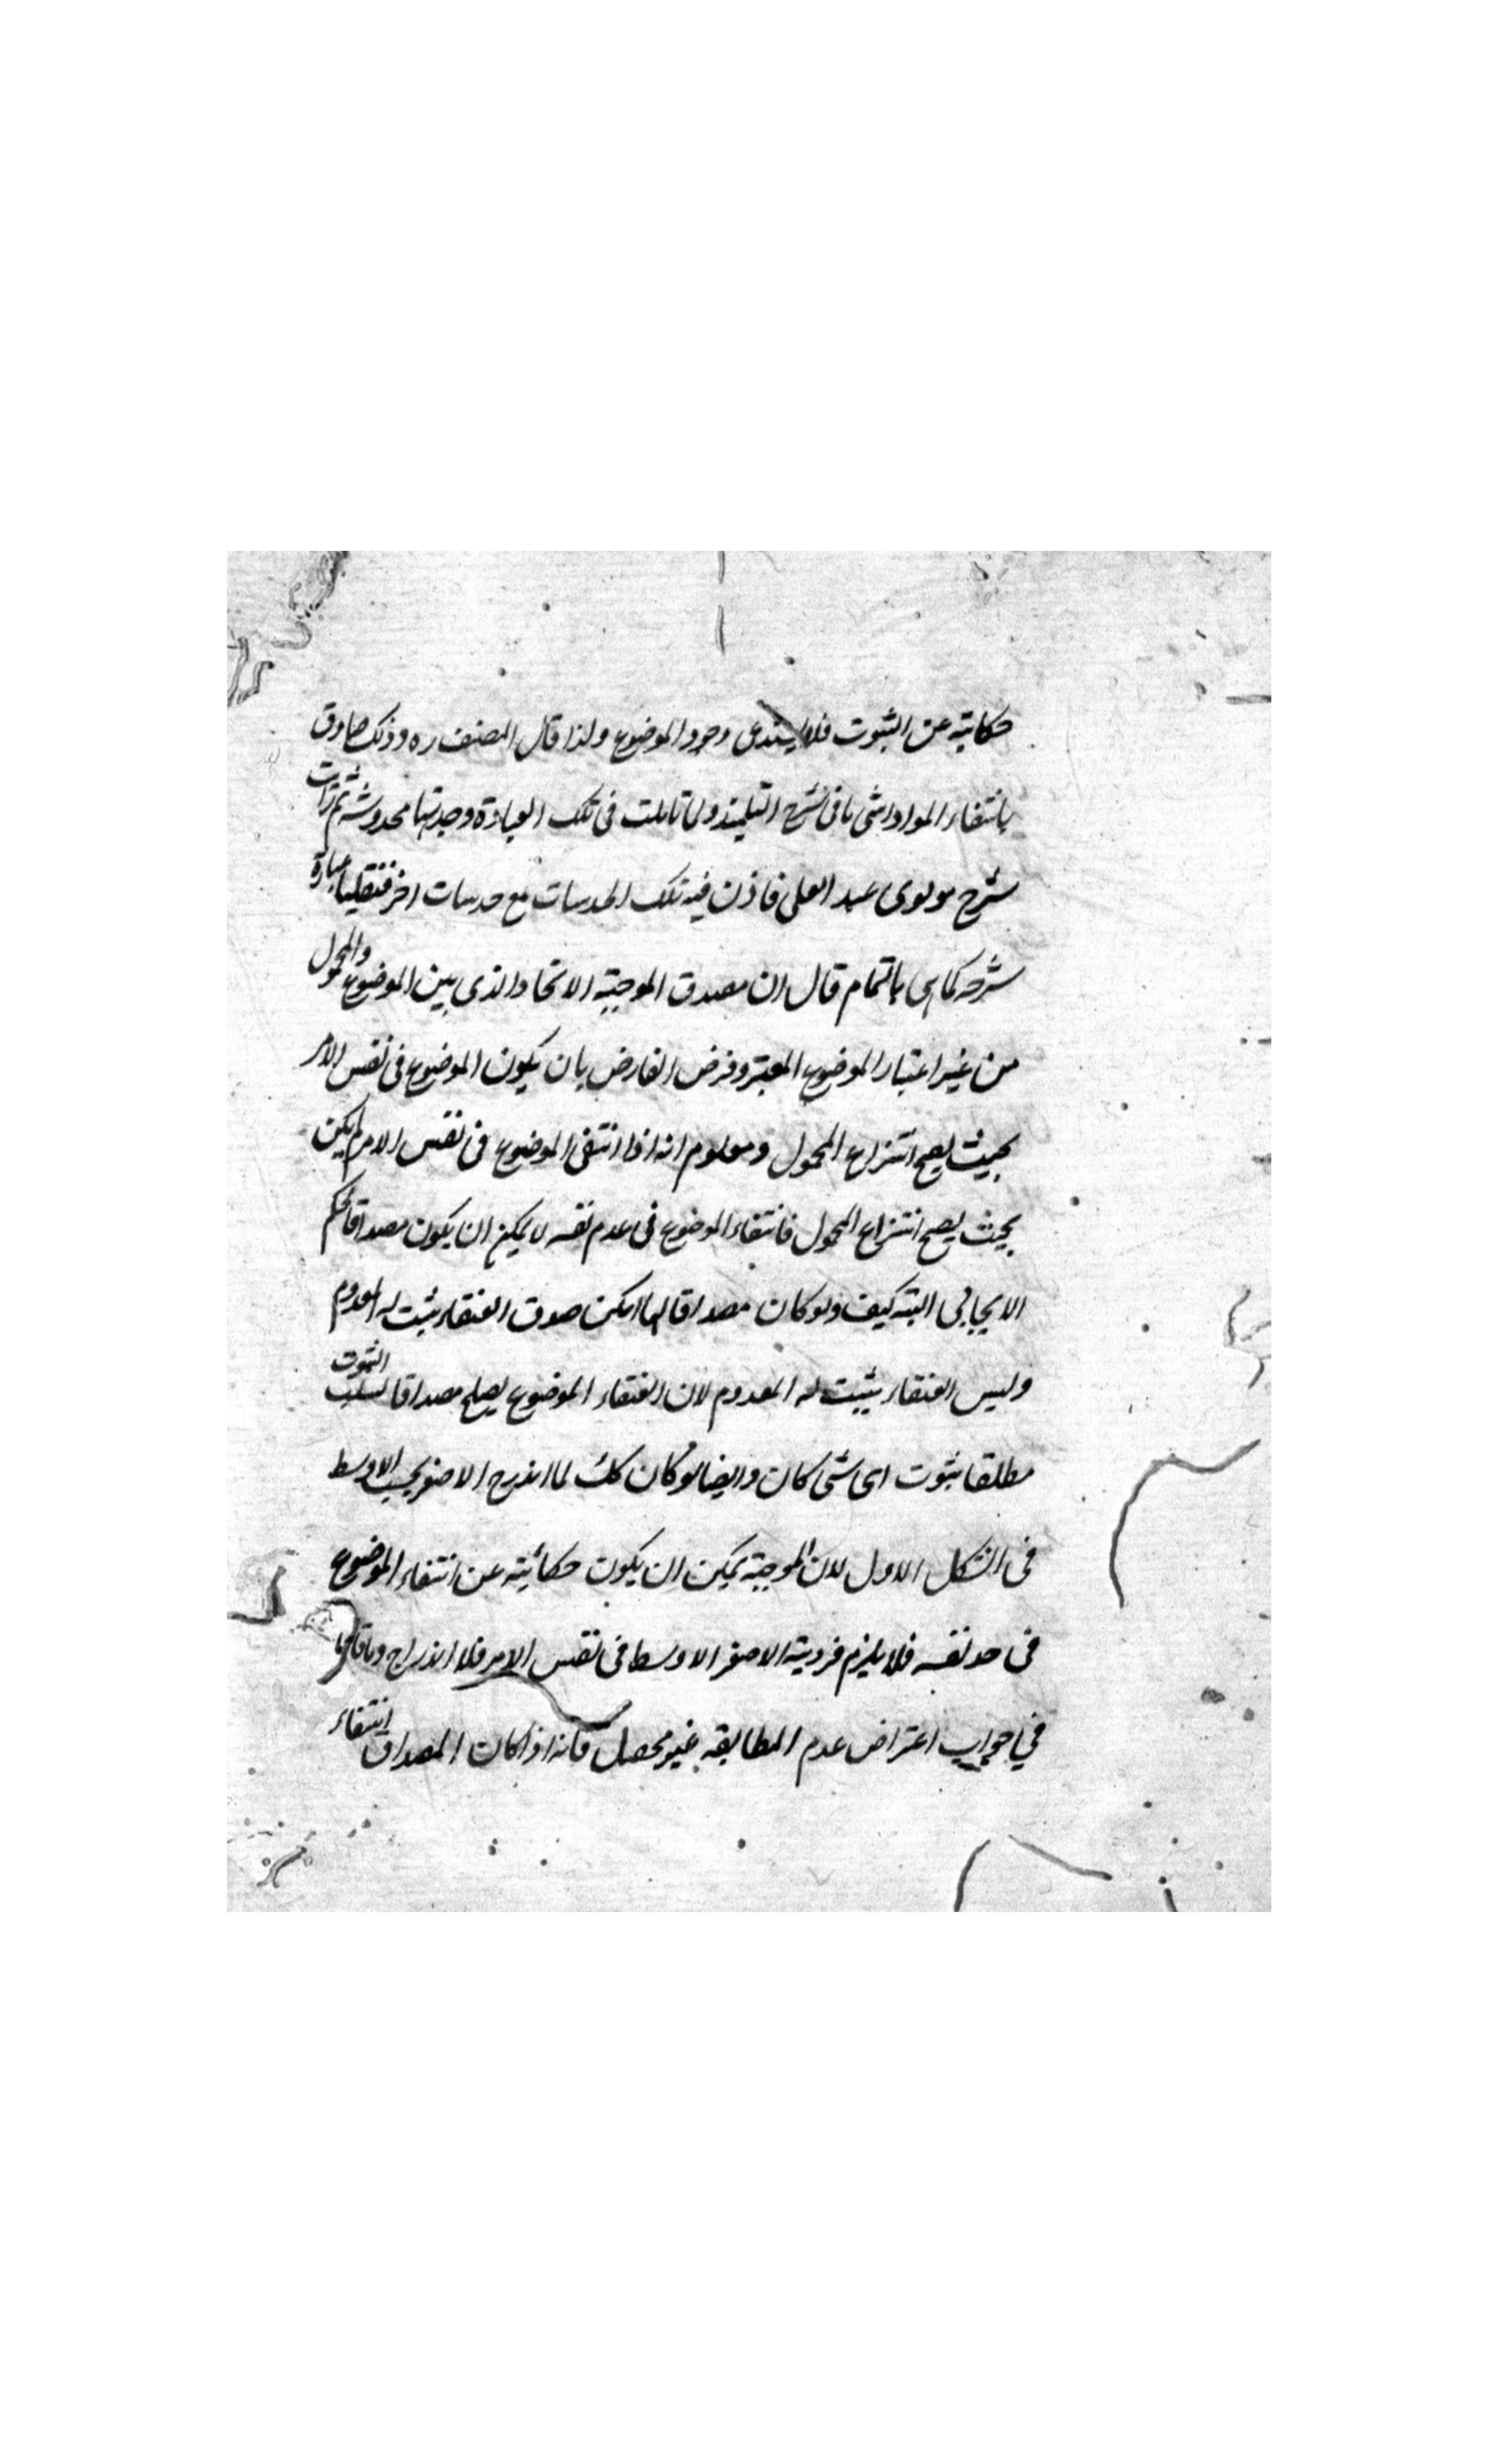 حكاية عن الثبوت فلا يستدعى وجود الموضوع ولذا قال المصنف ره وذلك صادق
بانتفاء المواد انتهى ما فى شرح التلميذ ولما تاملت فى تلك العبارة وجدتها مخدوشة ثم رايت
شرح مولوى عبد العلى فاذن فيه تلك الخدشات مع خدشات اخر فنقلنا عبارة
شرحه كما هى بالتمام قال ان مصدق الموجبة الاتحاد الذى بين الموضوع والمحمول
من غير اعتبار الموضوع المعتبر وفرض الفارض بان يكون الموضوع فى نفس الامر
بحيث يصح انتزاع المحمول ومعلوم انه اذا انتفى الموضوع فى نفس الامر لم يكن
بحيث يصح انتزاع المحمول فانتفاء الموضوع فى عدم نفسه لا يمكن ان يكون مصداقا لحكم
الايجابى البتة كيف ولو كان مصداقا لها امكن صدق العنقاء يثبت له المعدوم
وليس العنقاء يثبت له المعدوم لان انتفاء الموضوع يصلح مصداقا لسلب الثبوت
مطلقا ثبوت اى شئ كان وايضا لو كان كك لما اندرج الاصغر بحسب الاوسط
فى الشكل الاول لان الموجبة يمكن ان يكون حكائية عن انتفاء الموضوع
فى حد نفسه فلا يلزم فردية الاصغر الاوسط فى نفس الامر فلا اندراج وما قال
فى جواب اعتراض عدم المطابقة غير محصل فانه اذا كان المصداق انتفاء